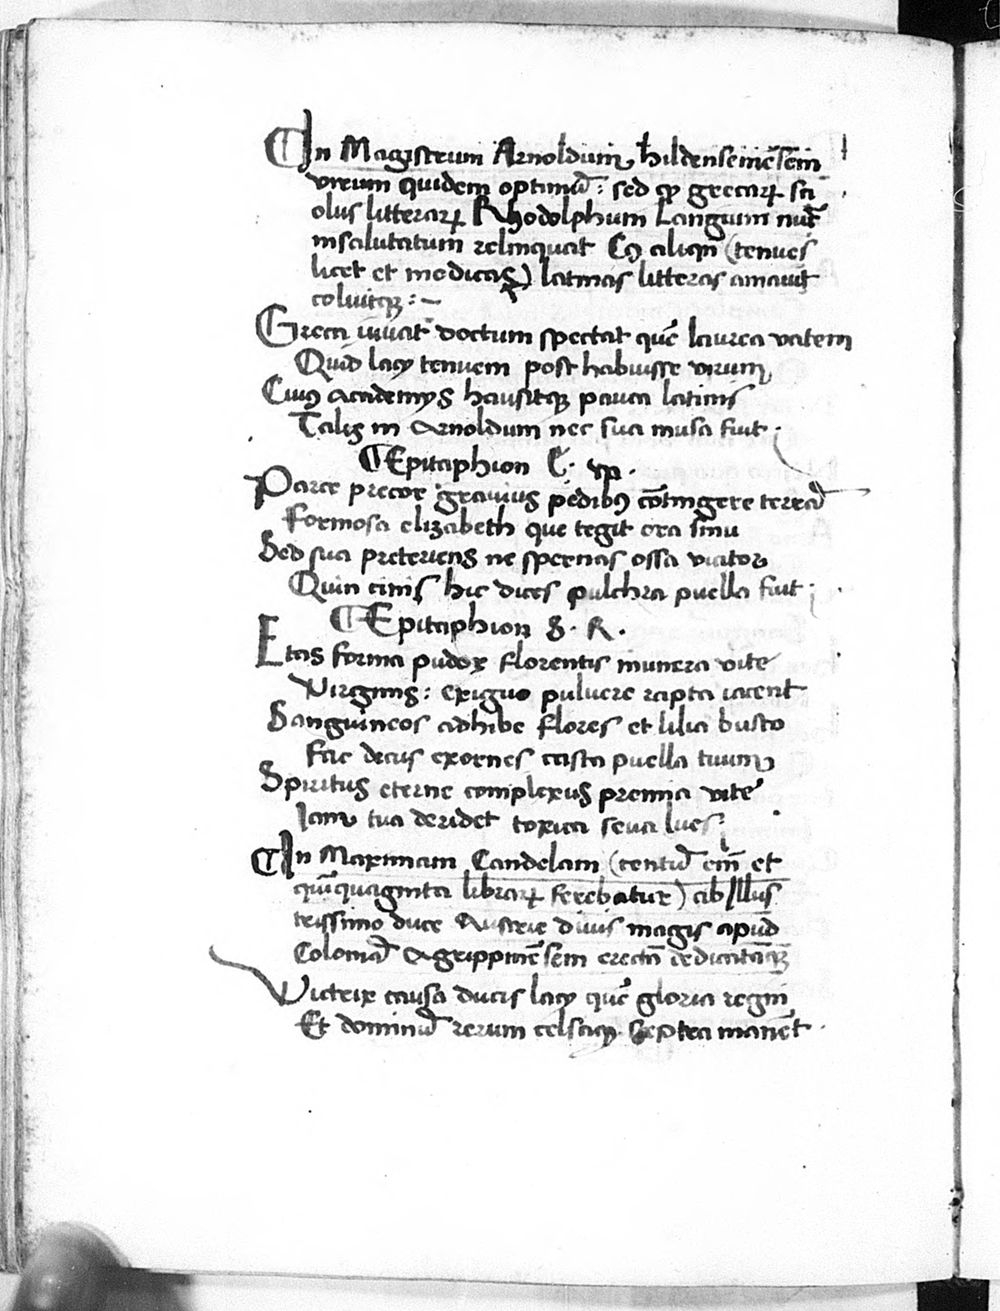 In Magistrum Arnoldum hildensemēsem
virum quidem optimū: sed qꝫ grecaꝝ sci
olus litteraꝝ Rhodolphum Langium
insalutatum relinquat Qꝫ aliqn̄ (tenues
licet et modicas) latinas litteras amauit
coluitqꝫ: ~
Greca iuuat doctum spectat quē laurea vatem
Quid lacꝫ tenuem post habuisse virum
Cuiꝰ academys hausitqꝫ pauca latinis
Talis in Arnoldum nec sua musa fiut.
Epitaphion C. vp.
Parce precor grauius pedibꝰ cōtingere terrā
Formosa elizabeth que tegit ora sinu
Sed sua preteriens ne spernas ossa viator
Quin cinis hic dices pulchra puella fuit:
Epitaphion S. R.
Etas forma pudor florentis munera vite
Virginis: exiguo puluere rapta iacent
Sanguineos adhibe flores et lilia busto
Fac decus exornes casta puella tuum
Spiritus eterne complexus premia vite
Iam tua deridet toxica seua lues.
In Maximam Candelam (centū em̄ et
quīquaginta libraꝝ ferebatur) ab Illus
trissimo duce Austrie diuis magis apud
Coloniā Agrippinēsem erectā dedicatāqꝫ
Victrix causa ducis lacꝫ quē gloria regni
Et dominū rerum celsaqꝫ sceptra manēt.